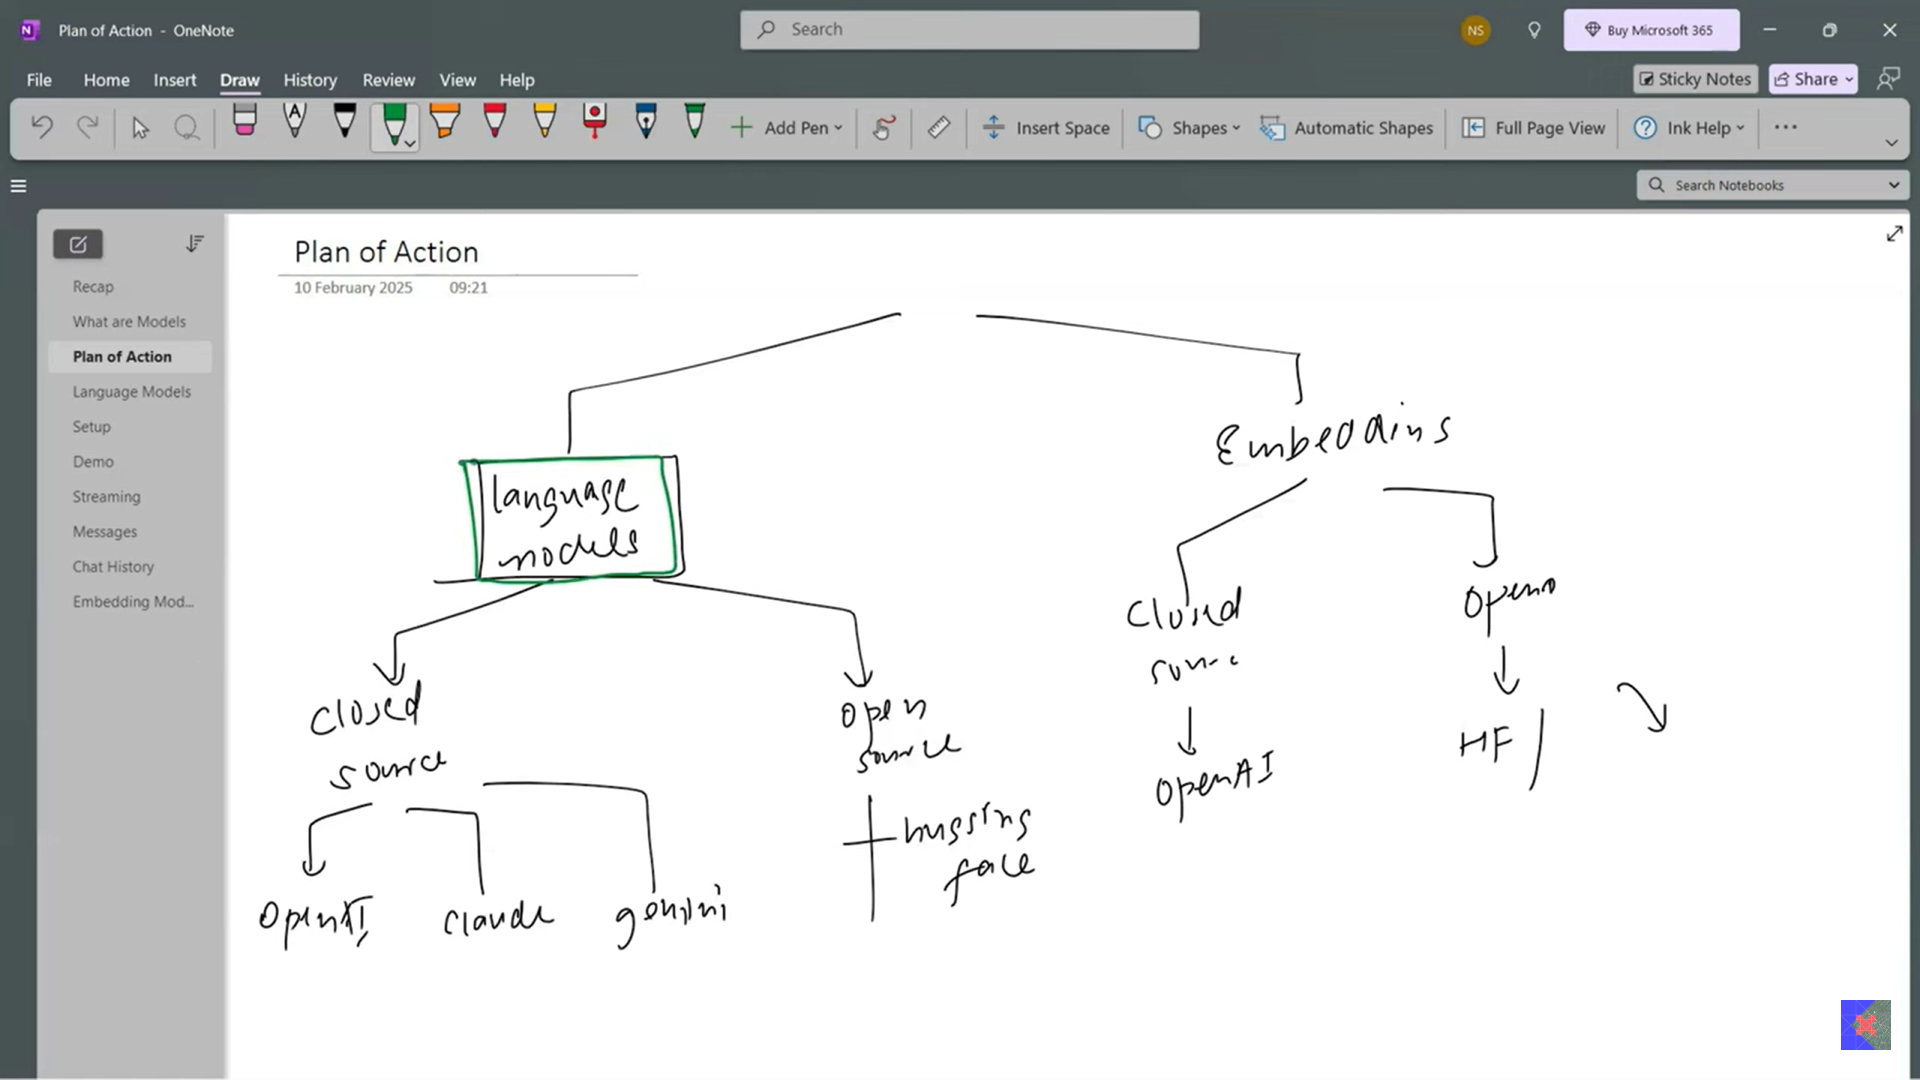 Plan of Action - OneNote
Search
NS
Buy Microsoft 365
File Home Insert Draw History Review View Help
Sticky Notes
Share
Add Pen
Insert Space
Shapes
Automatic Shapes
Full Page View
Ink Help
Search Notebooks
Recap
What are Models
Plan of Action
Language Models
Setup
Demo
Streaming
Messages
Chat History
Embedding Mod...
Plan of Action
10 February 2025 09:21
language
models
Embeddins
Closed
source
Open
source
Closed
Open
OpenAI
HF
hugging
face
OpenAI
claude
gemini